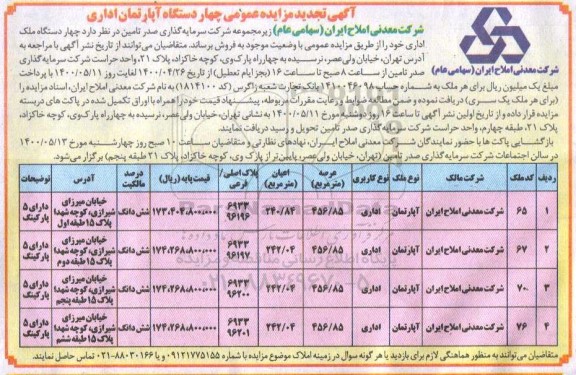 آگهی تجدید مزایده عمومی چهار دستگاه آپارتمان اداری
شرکت معدنی املاح ایران (سهامی عام) زیرمجموعه شرکت سرمایه گذاری صدر تامین در نظر دارد چهار دستگاه ملک
اداری خود را از طریق مزایده عمومی با وضعیت موجود به فروش برساند. متقاضیان می توانند از تاریخ نشر آگهی با مراجعه به
آدرس تهران، خیابان ولی عصر، نرسیده به چهارراه پارک وی، کوچه خاکزاد، پلاک ۲۱، واحد حراست شرکت سرمایه گذاری
صدر تامین از ساعت ۸ صبح تا ساعت ۱۶ (بجز ایام تعطیل) از تاریخ ۱۴۰۰/۰۴/۲۶ لغایت روز ۱۴۰۰/۰۵/۱۱ با پرداخت
مبلغ یک میلیون ریال برای هر ملک به شماره بانک تجارت شعبه زاگرس (کد ۱۸۱۴۱۰۰) به نام شرکت معدنی املاح ایران، اسناد مزایده را
(برای هر ملک یک سری) دریافت نموده و ضمن رعایت مقررات مربوطه، پیشنهاد قیمت خود را همراه با اوراق تکمیل شده در پاکت های دربسته
مزایده قرار داده و از تاریخ اولین نشر آگهی تا ساعت روز دوشنبه مورخ ۱۴۰۰/۰۵/۱۱ به نشانی تهران، خیابان ولی عصر، نرسیده به چهارراه پارک وی، کوچه خاکزاد،
پلاک ۲۱، طبقه چهارم، واحد حراست شرکت سرمایه گذاری صدر تامین تحویل و رسید دریافت نمایند.
بازگشایی پاکت ها با حضور نمایندگان شرکت معدنی املاح ایران، نهادهای نظارتی و متقاضیان ساعت ۱۰ صبح روز چهارشنبه مورخ ۱۴۰۰/۰۵/۱۳
در سالن اجتماعات شرکت سرمایه گذاری صدر تامین (تهران، خیابان ولی عصر، پایین تر از پارک وی، کوچه خاکزاد، پلاک ۲۱ طبقه پنجم) برگزار می شود.
شرکت معدنی املاح ایران (سهامی عام)
ردیف کد ملک شرکت مالک نوع ملک نوع کاربری عرصه (مترمربع) اعیان (مترمربع) پلاک اصلی/فرعی قیمت پایه (ریال) درصد مالکیت آدرس توضیحات
۱ ۶۵ شرکت معدنی املاح ایران آپارتمان اداری ۴۵۶/۸۵ ۲۴۰/۸۴ ۶۹۳۳ ۹۶۱۹۶ ۱۷۳،۴۰۴،۸۰۰،۰۰۰ شش دانگ خیابان میرزای شیرازی، کوچه شهدا پلاک ۱۵ طبقه اول دارای ۵ پارکینگ
۲ ۶۷ شرکت معدنی املاح ایران آپارتمان اداری ۴۵۶/۸۵ ۲۴۲/۰۴ ۶۹۳۳ ۹۶۱۹۷ ۱۷۴،۲۶۸،۸۰۰،۰۰۰ شش دانگ خیابان میرزای شیرازی، کوچه شهدا پلاک ۱۵ طبقه دوم دارای ۵ پارکینگ
۳ ۷۰ شرکت معدنی املاح ایران آپارتمان اداری ۴۵۶/۸۵ ۲۴۲/۰۴ ۶۹۳۳ ۹۶۲۰۰ ۱۷۴،۲۶۸،۸۰۰،۰۰۰ شش دانگ خیابان میرزای شیرازی، کوچه شهدا پلاک ۱۵ طبقه پنجم دارای ۵ پارکینگ
۴ ۷۶ شرکت معدنی املاح ایران آپارتمان اداری ۴۵۶/۸۵ ۲۴۲/۰۴ ۶۹۳۳ ۹۶۲۰۱ ۱۷۴،۲۶۸،۸۰۰،۰۰۰ شش دانگ خیابان میرزای شیرازی، کوچه شهدا پلاک ۱۵ طبقه ششم دارای ۵ پارکینگ
متقاضیان می توانند به منظور هماهنگی لازم برای بازدید یا هر گونه سوال در زمینه املاک موضوع مزایده با شماره ۰۹۱۲۱۷۷۵۱۵۵ و یا ۸۸۰۳۰۱۶۶-۰۲۱ تماس حاصل نمایند.